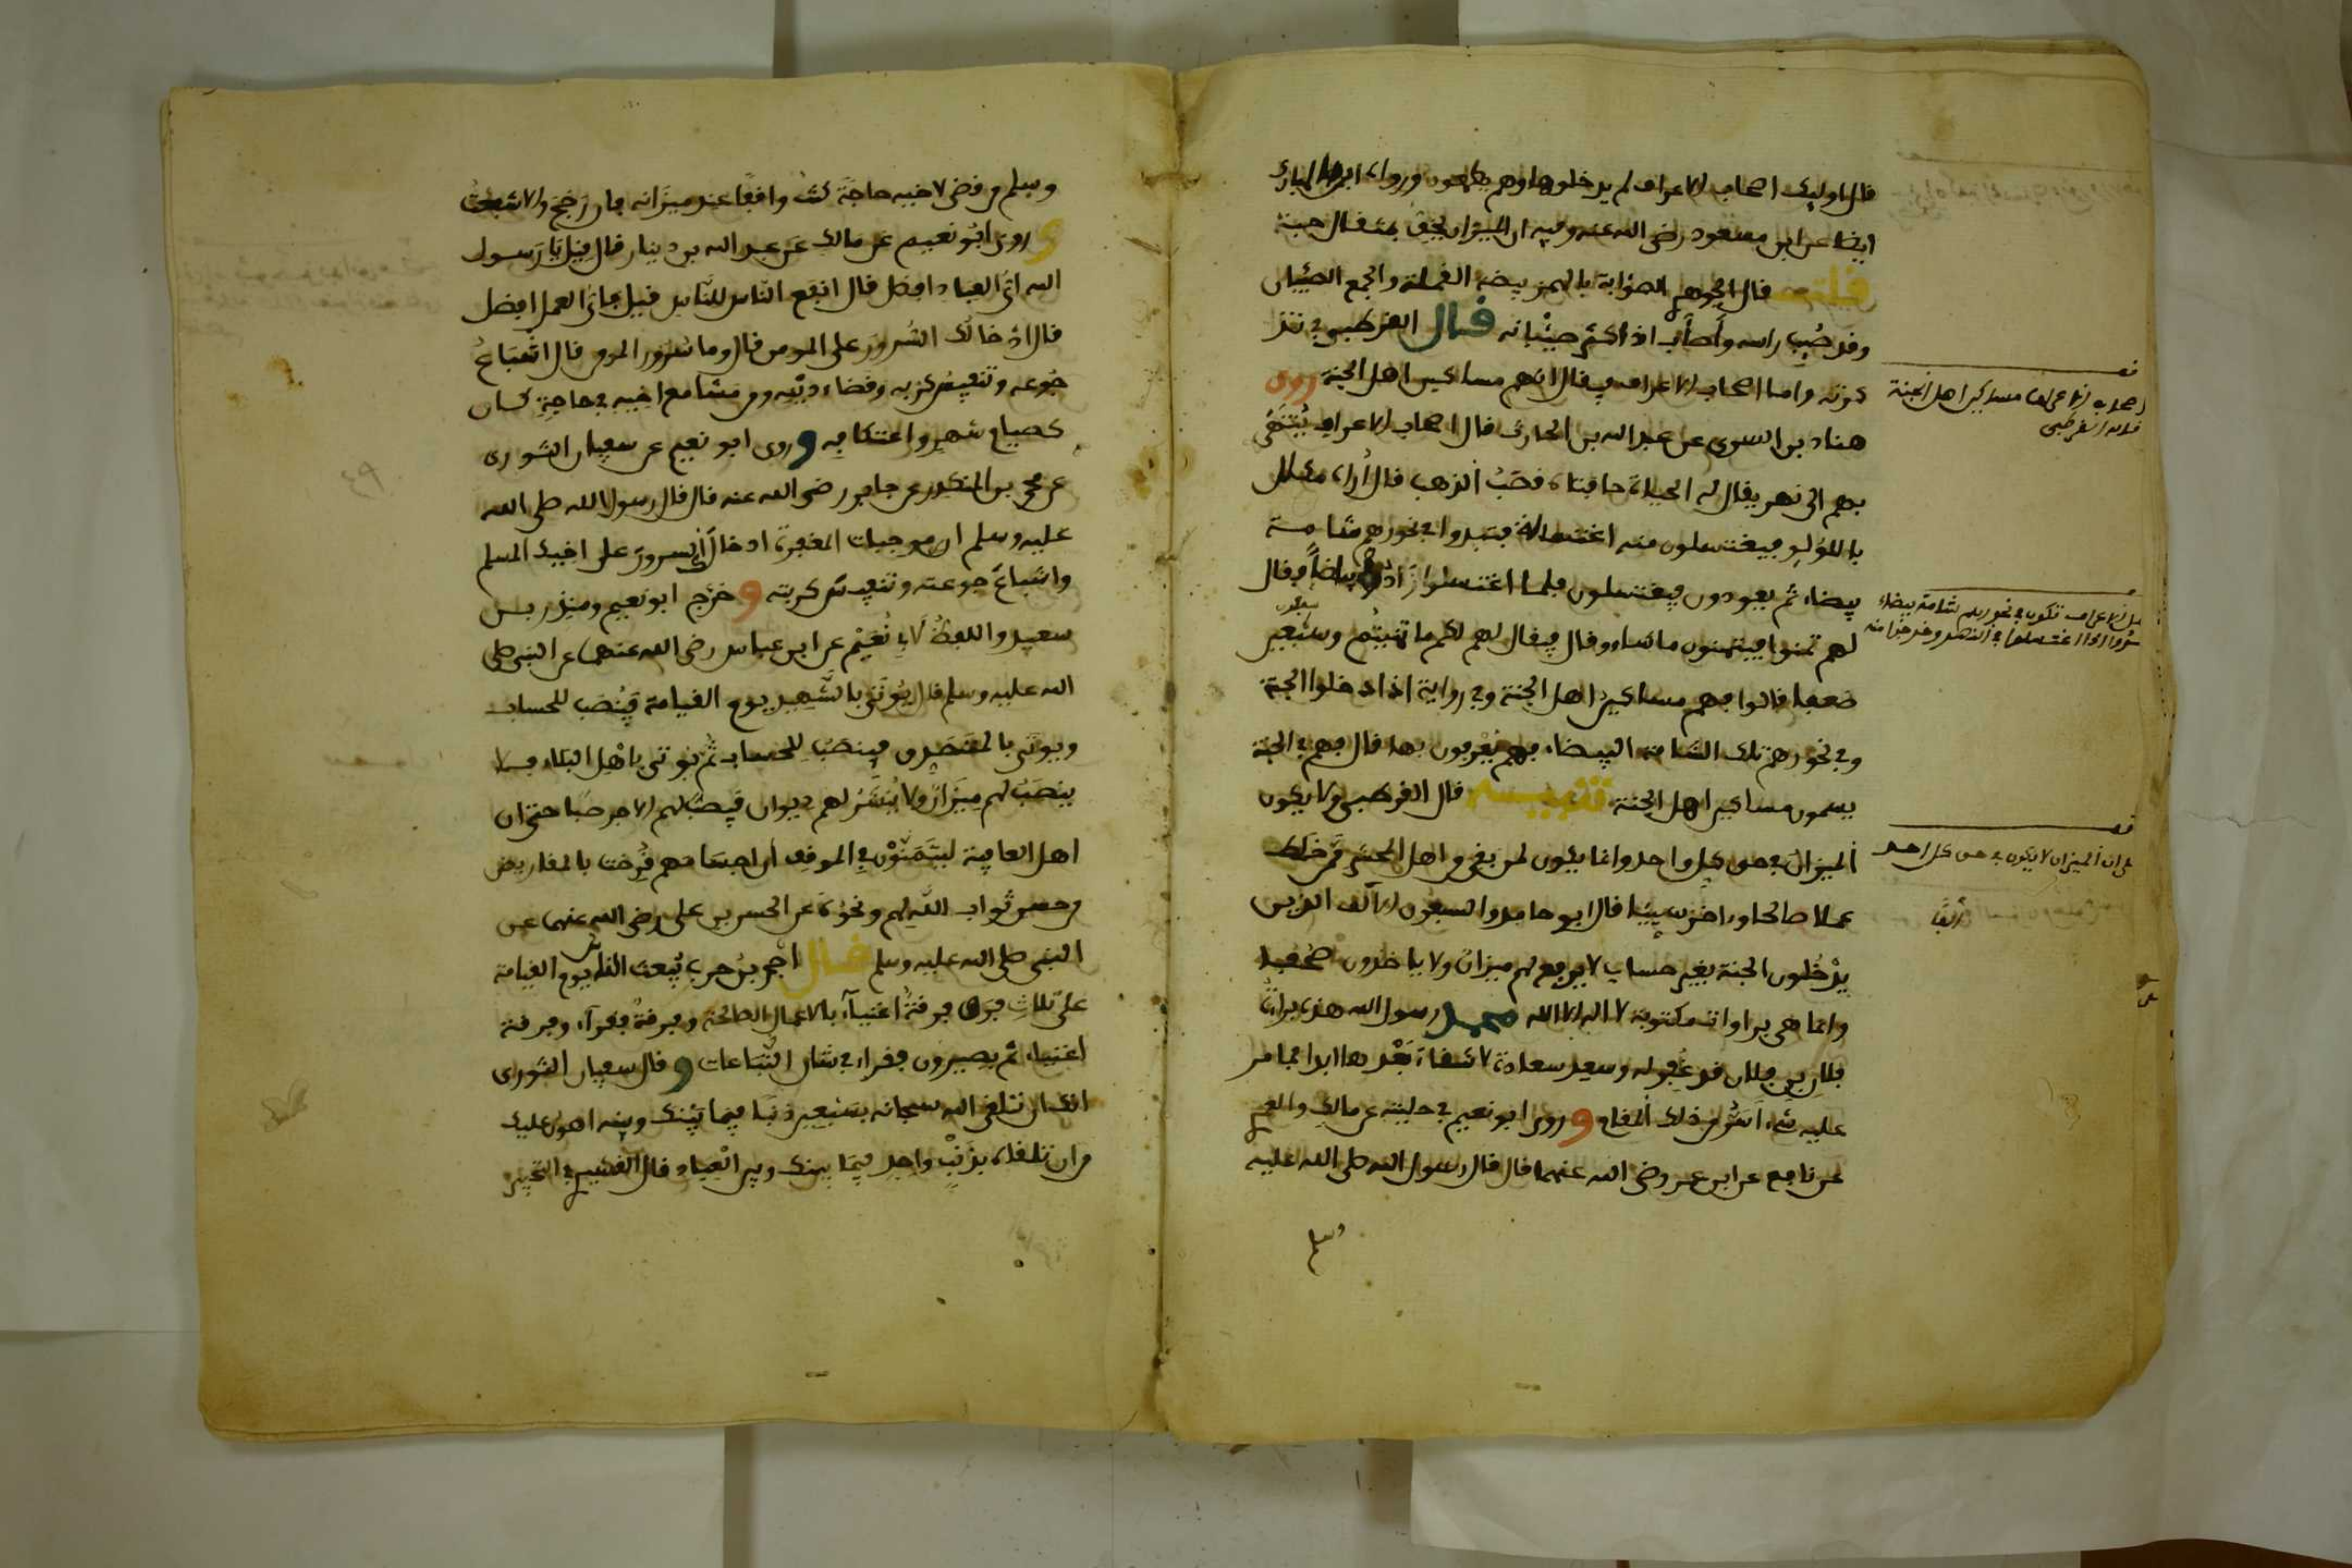 قال اوليك اصحاب الاعراف لم يدخلوها وهم يطمعون ورواه ابن المبارك
ايضا عن ابن مسعود رضى الله عنه وفيه ان الميزان يخف بمثقال حبة
قلت قال الجوهرى الصؤابة بالهمز بيضة القملة والجمع الصئبان
وقد صئب راسه وأصأب اذا كثر صئبانه قال القرطبي في تذ
كرته واما اصحاب الاعراف فيقال انهم مساكين اهل الجنة روى
هناد بن السرى عن عبد الله بن الحارث قال اصحاب الاعراف يُنتهى
بهم الى نهر يقال له الحياة حافتاه قصب الذهب قال أراه مكلل
باللؤلؤ فيغتسلون منه اغتسالة فتبدوا في نحورهم شامة
بيضاء ثم يعودون فيغتسلون فلما اغتسلوا زادت بياضاً فيقال
لهم تمنوا فيتمنون ما شاءوا قال فيقال لهم لكم ما تمنيتم وسبعين
ضعفا قالوا فهم مساكين اهل الجنة وفي رواية اذا دخلوا الجنة
وفي نحورهم تلك الشامة البيضاء فهم يعرفون بها قال فهم في الجنة
يسمون مساكين اهل الجنة تنبيه قال القرطبي ولا يكون
الميزان في حق كل واحد وانما يكون لمن بقي من اهل المحشر ممن خلط
عملا صالحا وءاخر سيئا قال ابو حامد والسبعون الالف الذين
يدخلون الجنة بغير حساب لا يرفع لهم ميزان ولا ياخذون صحفا
وانما هي براوات مكتوبة لا اله الا الله محمد رسول الله هذه براءة
فلان بن فلان قد غفر له وسعد سعادة لا شقاء بعدها ابدا فما مر
عليه شىء أسَرُّ من ذلك المقام وروى ابو نعيم في حليته عن مالك والعمرى
عن نافع عن ابن عمر رضى الله عنهما قال قال رسول الله صلى الله عليه
وسلم
اصحاب الاعراف مساكين اهل الجنة
قاله القرطبي
اهل الاعراف تكون في نحورهم شامة بيضاء
على ان الميزان لا يكون في حق كل احد
وسلم من قضى لاخيه حاجة كنت واقفا عند ميزانه فان رجح والا شفعت
وروى ابو نعيم عن مالك عن عبد الله بن دينار قال قيل يا رسول
الله اي العباد افضل قال انفع الناس للناس قيل فاي العمل افضل
قال ادخالك السرور على المومن قال وما سرور المومن قال اشباع
جوعه وتنفيس كربه وقضاء دينه ومن مشا مع اخيه في حاجة كان
كصيام شهر واعتكافه وروى ابو نعيم عن سفيان الثورى
عن محمد بن المنكدر عن جابر رضى الله عنه قال قال رسول الله صلى الله
عليه وسلم ان من موجبات المغفرة ادخال السرور على اخيك المسلم
واشباع جوعته وتنفيس كربته وخرّج ابو نعيم ومنذر بن
سعيد واللفظ لابي نُعَيْم عن ابن عباس رضى الله عنهما عن النبي صلى
الله عليه وسلم قال يؤتى بالشهيد يوم القيامة فيُنصَب للحساب
ويوتى بالمتصدق فينصب للحساب ثم يوتى باهل البلاء فلا
ينصب لهم ميزان ولا يُنشَر لهم ديوان فيصب لهم الاجر صبا حتى ان
اهل العافية ليتمنون في الموقف ان اجسامهم قُرضت بالمقاريض
من حسن ثواب الله لهم ونحوه عن الحسن بن على رضى الله عنهما عن
النبي صلى الله عليه وسلم قال احمد بن حرب يُبعث الناس يوم القيامة
على ثلاث فرق فرقة اغنياء بالاعمال الصالحة وفرقة فقراء وفرقة
اغنياء ثم يصيرون فقراء في شان التباعات وقال سفيان الثورى
انك ان تلقى الله سبحانه بسبعين ذنبا فيما بينك وبينه اهون عليك
من ان تلقاه بذنب واحد فيما بينك وبين العباد قال القشيرى في التحبير